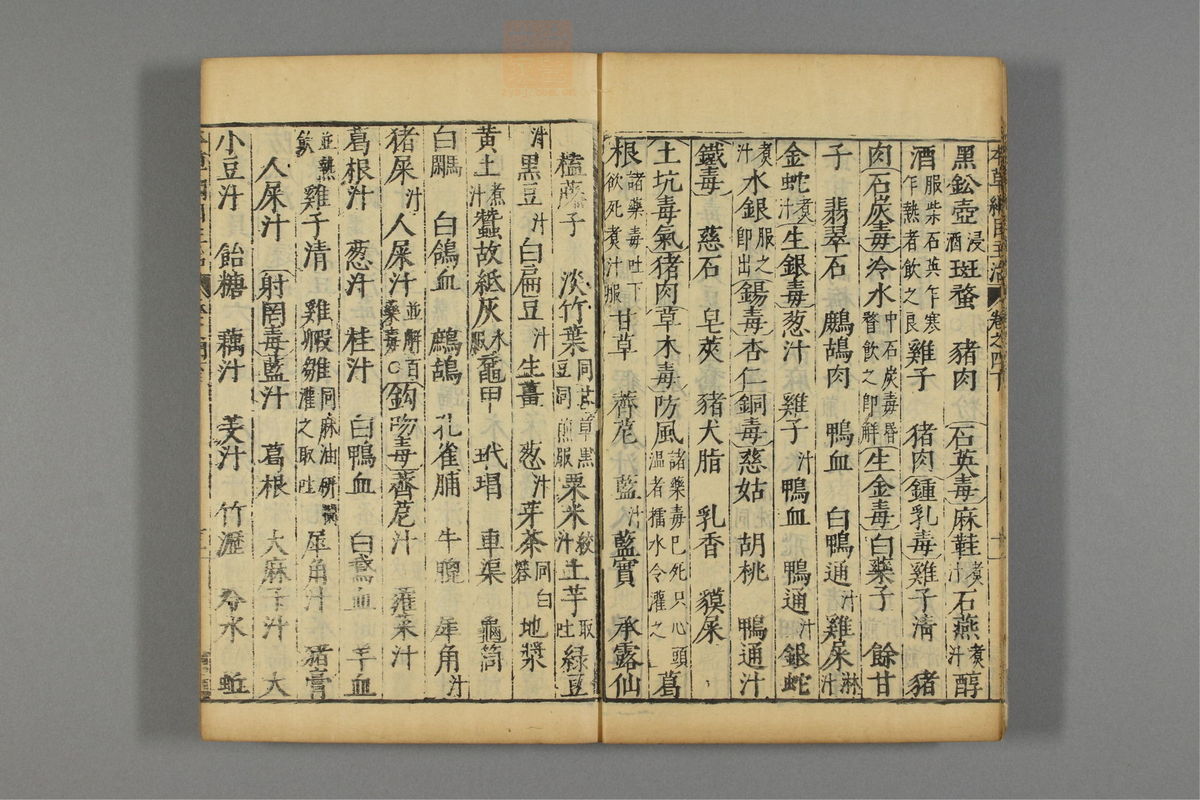 黑鈆壺浸酒斑蝥　豬肉　石英毒麻鞋煮汁石燕煮汁醇
酒服紫石英乍寒乍熱者飲之良雞子　豬肉鍾乳毒雞子清　豬
肉石炭毒冷水中石炭毒昏瞀飲之卽解生金毒白藥子　餘甘
子　翡翠石　鷓鴣肉　鴨血　白鴨通汁雞屎淋汁
金蛇煮汁生銀毒葱汁　雞子汁鴨血　鴨通汁銀蛇
煮汁水銀服之卽出錫毒杏仁銅毒慈姑　胡桃　鴨通汁
鐵毒　慈石　皂莢　豬犬脂　乳香　貘屎
土坑毒氣豬肉草木毒防風諸藥毒已死只心頭温者擂水令灌之葛
根諸藥毒吐下欲死煮汁服甘草　薺苨汁藍汁　藍實　承露仙
榼藤子　淡竹葉同甘草黑豆同煎服粟米絞汁土芋取吐綠豆
汁黑豆汁白扁豆汁生薑　葱汁芽茶同白礬地漿
黄土煮汁蠶故紙灰水服龜甲　玳瑁　車渠　龜筒
白鷴　白鴿血　鷓鴣　孔雀脯　牛　犀角汁
猪屎汁人屎汁並解百藥毒○鈎吻毒薺苨汁　蕹菜汁
葛根汁　葱汁　桂汁　白鴨血　白鵞血　羊血
並熱飲雞子清　雞㲉雛同麻油研爛灌之取吐犀角汁　猪膏
人屎汁　射罔毒藍汁　葛根　大麻子汁　大
小豆汁　飴糖　藕汁　芰汁　竹瀝　冷水　蚯